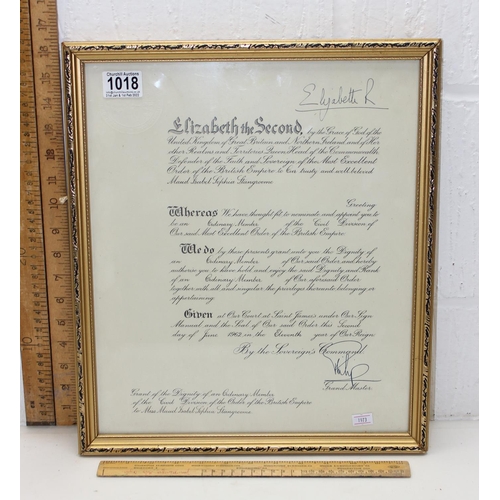 Churchill Auctions
1018
Elizabeth R
Elizabeth the Second, by the Grace of God of the
United Kingdom of Great Britain and Northern Ireland and of Her
other Realms and Territories Queen, Head of the Commonwealth,
Defender of the Faith and Sovereign of the Most Excellent
Order of the British Empire to Our trusty and well beloved
Maud Isabel Sophia
Greeting
Whereas We have thought fit to nominate and appoint you to
be an Ordinary Member of the Civil Division of
Our said Most Excellent Order of the British Empire
We do by these presents grant unto you the Dignity of
an Ordinary Member of Our said Order and hereby
authorise you to have hold and enjoy the said Dignity and Rank
of an Ordinary Member of Our aforesaid Order
together with all and singular the privileges thereunto belonging or
appertaining.
Given at Our Court at Saint James's under Our Sign
Manual and the Seal of Our said Order this Second
day of June 1962 in the Eleventh year of Our Reign
By the Sovereign's Command.
Philip
Grand Master
Grant of the Dignity of an Ordinary Member
of the Civil Division of the Order of the British Empire
to Miss Maud Isabel Sophia